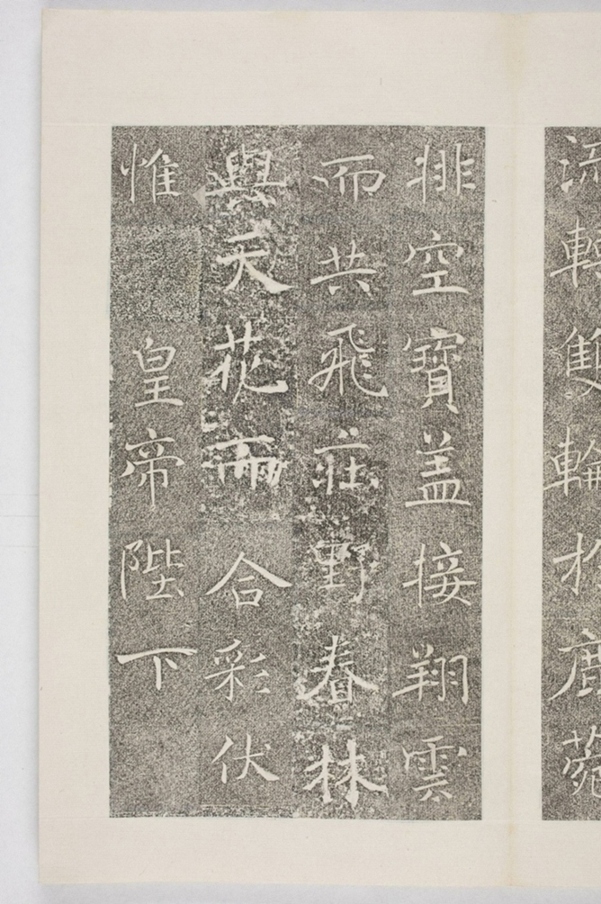 流轉雙輪扵鹿菀
排空寶盖接翔雲
而共飛莊野春林
與天花而合彩伏
惟皇帝陛下